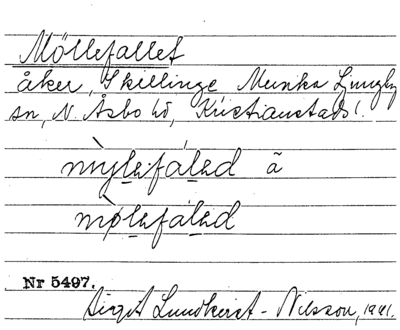 Möllefallet
åker, Skillinge Munka Ljungby
sn, N. Åsbo hd, Kristianstads l.
mỳlefáled ã
mø̀lefáled
Nr 5497.
Birgit Lundkvist-Nilsson, 1941.